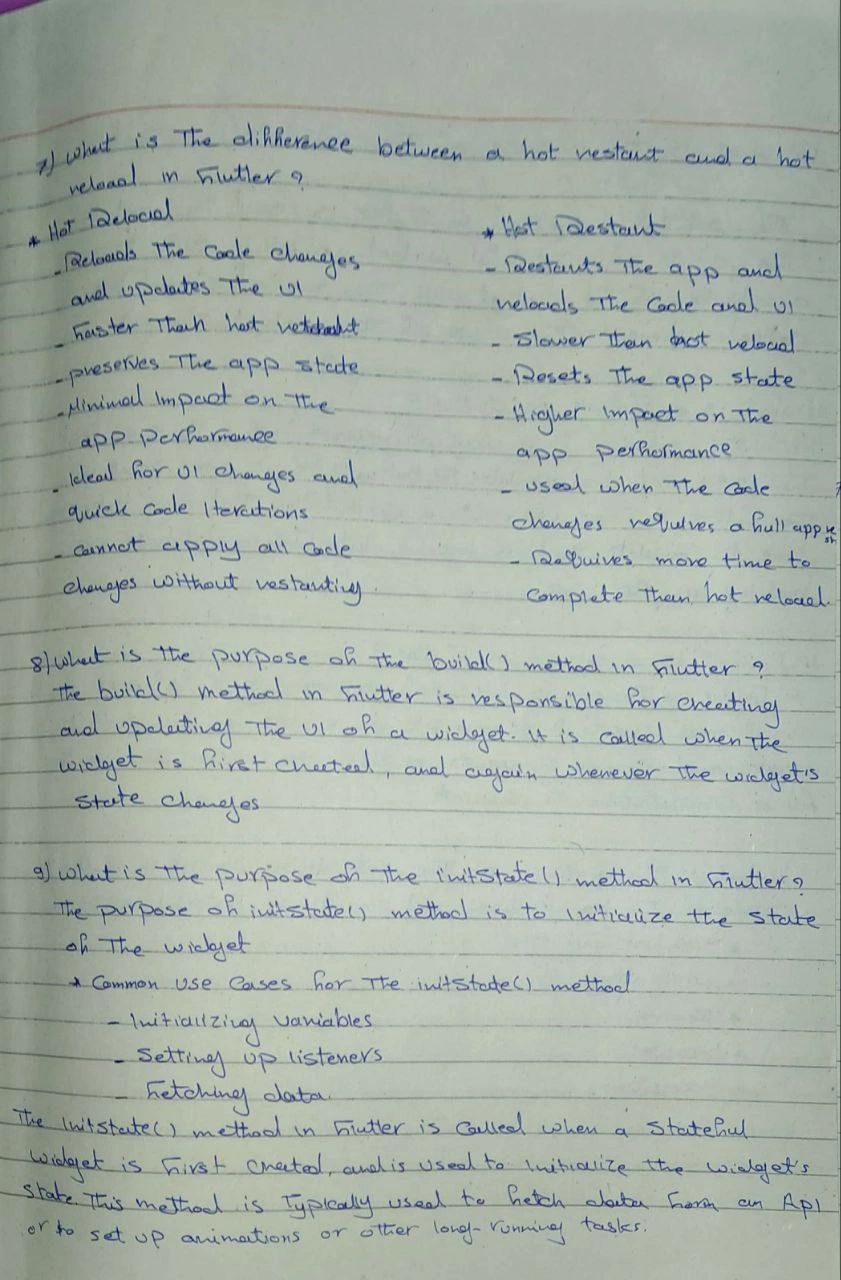 7) What is The difference between a hot restart and a hot
reload in Flutter ?
* Hot Reload
- Reloads The Code changes
and updates The UI
- Faster Than hot
- preserves The app state
- Minimal Impact on the
app performance
- Ideal for UI changes and
quick Code Iterations
- Cannot apply all Code
changes without restarting.
* Hot Restart
- Restarts The app and
reloads The Code and UI
- Slower Than hot reload
- Resets The app state
- Higher Impact on The
app performance
- used when The Code
changes requires a full app
- Requires more time to
Complete Than hot reload.
8) What is the purpose of The build() method in Flutter ?
The build() method in Flutter is responsible for creating
and updating The UI of a widget. It is called when The
widget is first created, and again whenever The widget's
State changes
9) What is The purpose of The initState() method in Flutter?
The purpose of initState() method is to Initialize the State
of The widget
* Common use Cases for The initState() method
- Initializing variables
- Setting up listeners
- Fetching data.
The InitState() method in Flutter is Called when a Stateful
widget is first created, and is used to initialize the widget's
state. This method is Typically used to fetch data form an API
or to set up animations or other long-running tasks.